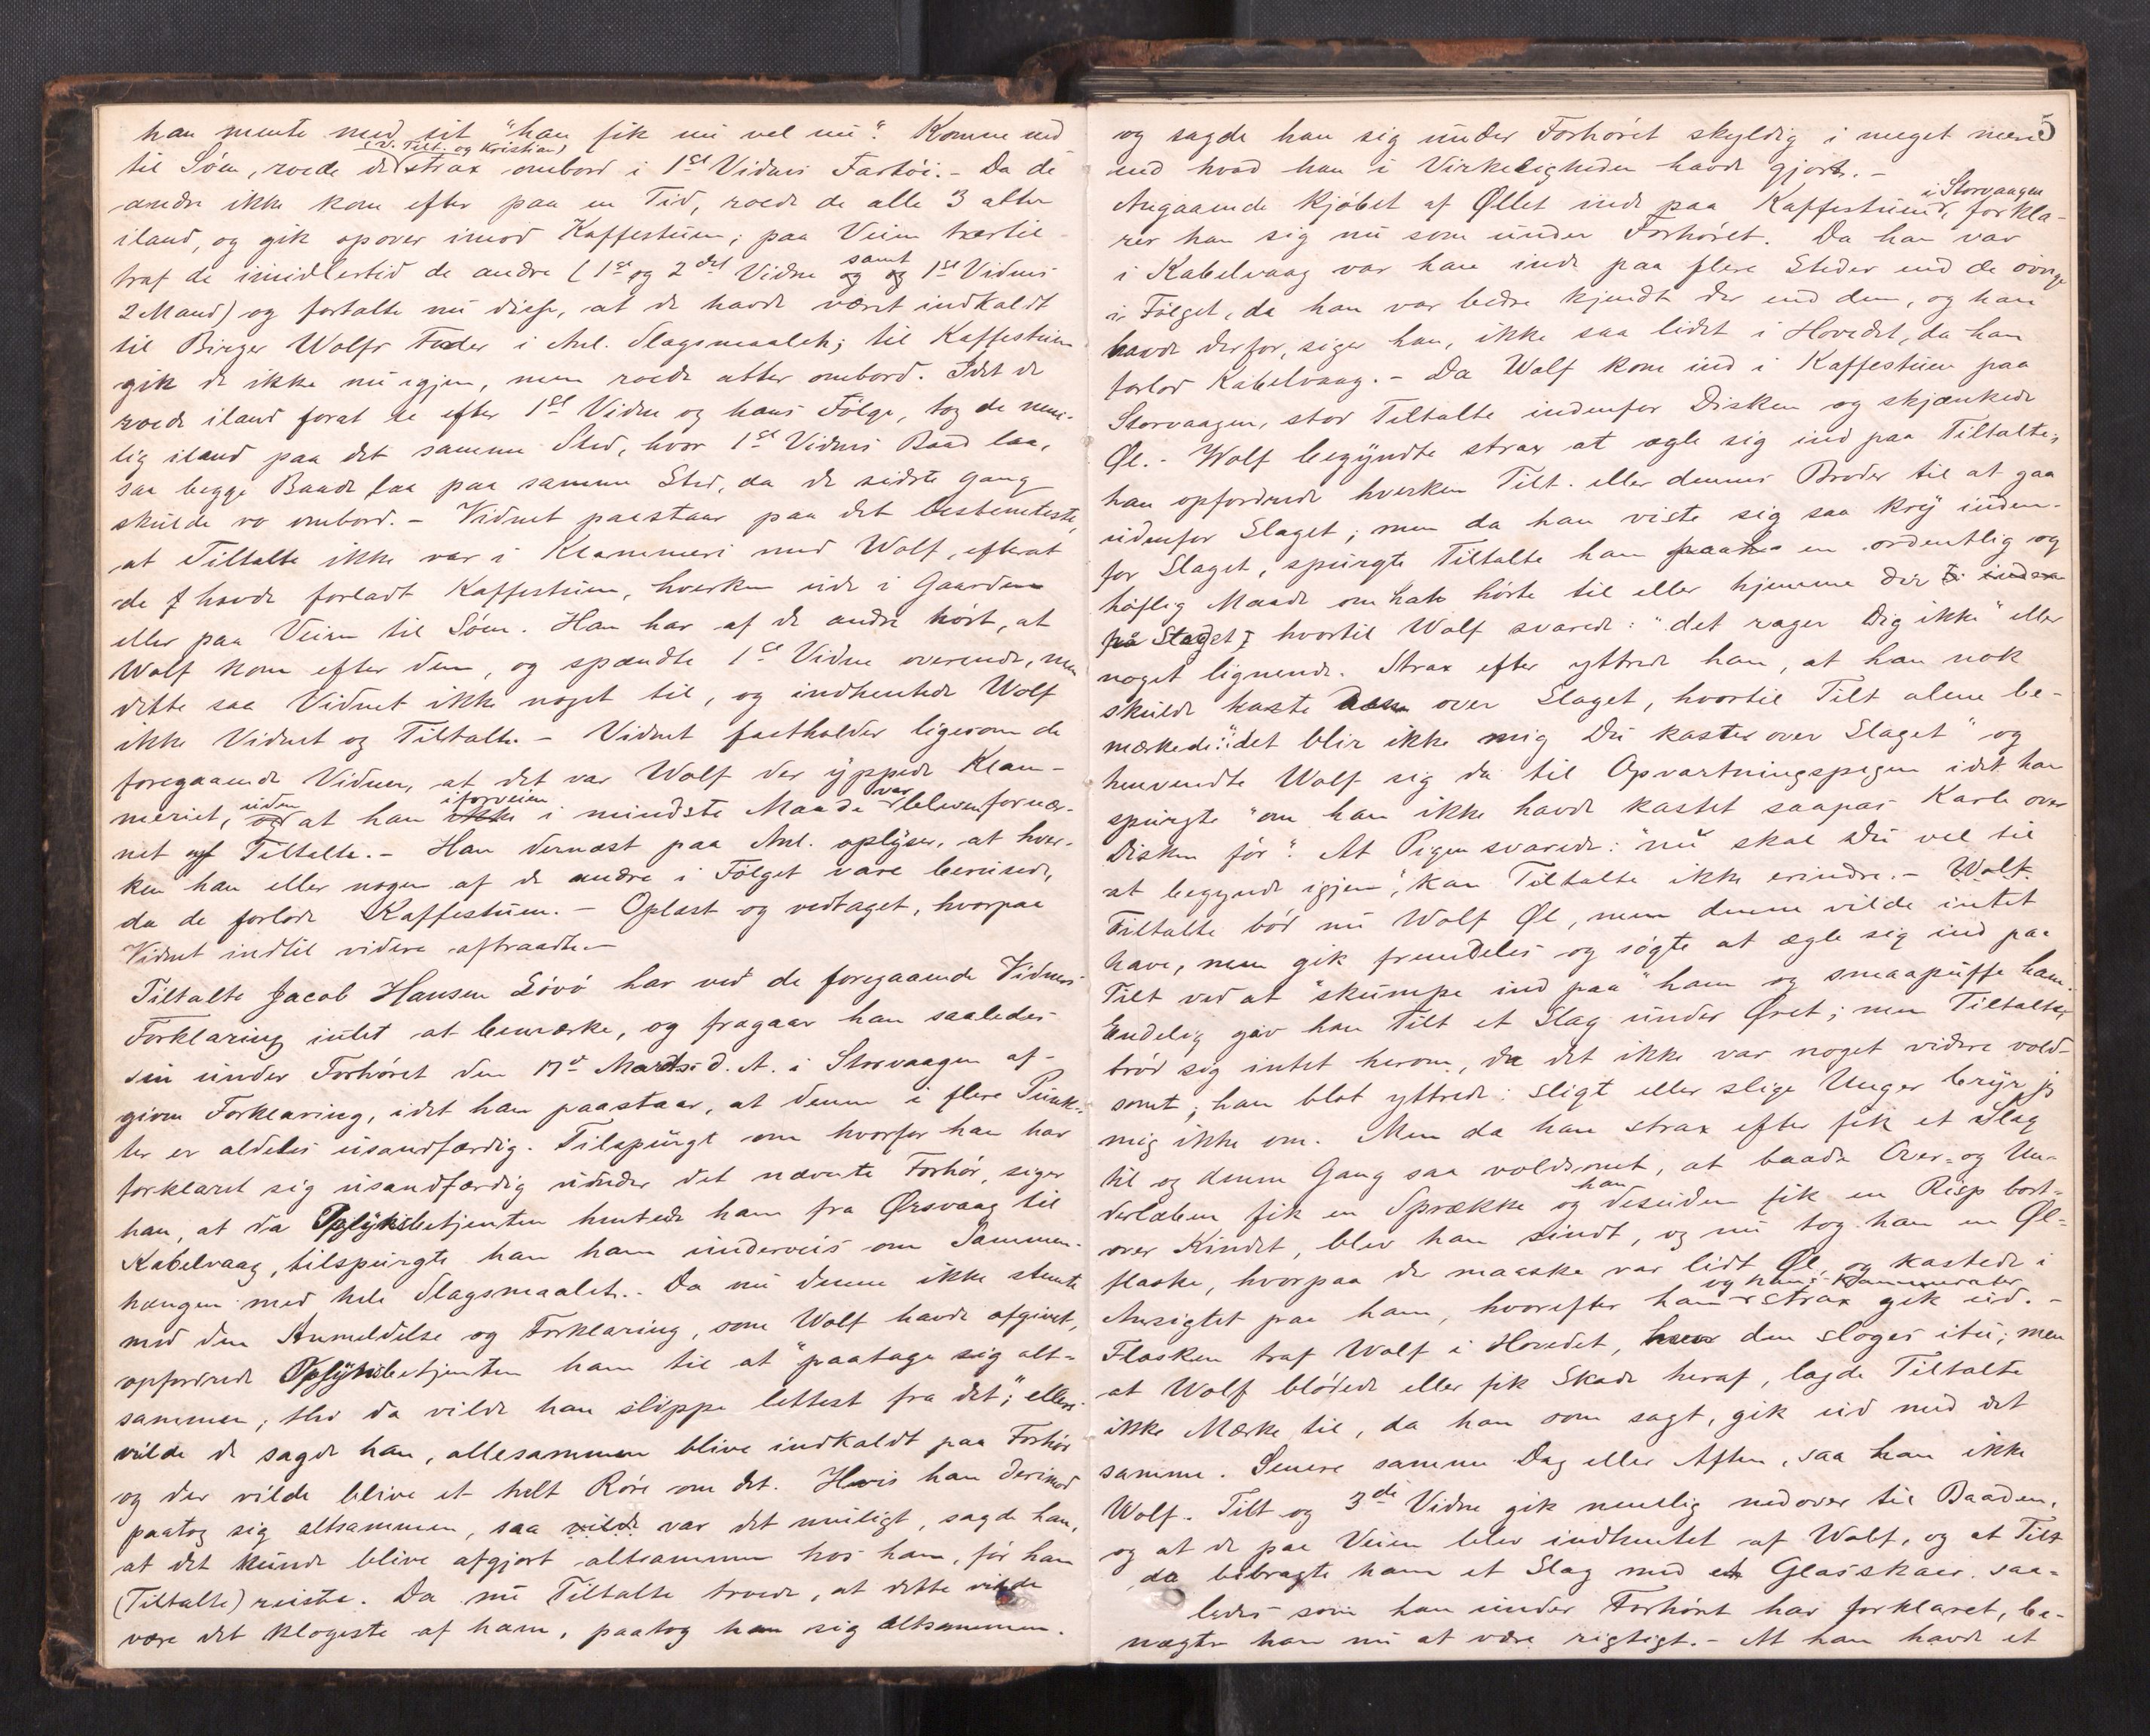 han mente med sit "han fik nu vel nu". Komne ned
til Søen, roede de (V. Tilt. og Kristian) strax ombord i 1st Vidnes Fartøi. - Da de
andre ikke kom efter paa en Tid, roede de alle 3 atter
iland, og gik opover imod Kaffestuen; paa Veien hertil
traf de imidlertid de andre (1st og 2det Vidne samt og og 1st Vidnes
2 Mand) og fortalte nu disse, at de havde været indkaldt
til Birger Wolfs Fader i Anl. Slagsmaalet; til Kaffestuen
gik de ikke nu igjen, men roede atter ombord. Idet de
roede iland forat se efter 1st Vidne og hans Følge, tog de nem-
lig iland paa det samme Sted, hvor 1st Vidnes Baad laa,
saa begge Baade laa paa samme Sted, da de sidste Gang
skulde ro ombord. - Vidnet paastaar paa det bestemteste,
at Tiltalte ikke var i Klammeri med Wolf, efterat
de havde forladt Kaffestuen, hverken ude i Gaarden
eller paa Veien til Søen. Han har af de andre hørt, at
Wolf kom efter dem, og spændte 1st Vidne overende, men
dette saa Vidnet ikke noget til, og indhentede Wolf
ikke Vidnet og Tiltalte. - Vidnet fastholder ligesom de
foregaaende Vidner, at det var Wolf der yppede Klam-
meriet, uden og at han iforveien ikke i mindste Maade var bleven fornær-
met af Tiltalte. - Han dernæst paa Anl. oplyser, at hver-
ken han eller nogen af de andre i Følget vare berusede,
da de forlode Kaffestuen. - Oplæst og vedtaget, hvorpaa
Vidnet indtil videre aftraadte. -
Tiltalte Jacob Hansen Løvø har ved de foregaaende Vidners
Forklaring intet at bemærke, og fragaar han saaledes
sin under Forhøret den 17de Marts d. A. i Storvaagen af-
given Forklaring, idet han paastaar, at denne i flere Punk-
ter er aldeles usandfærdig. Tilspurgt om hvorfor han har
forklaret sig usandfærdig under det nævnte Forhør, siger
han, at da Opsynsbetjenten hentede ham fra Ørsvaag til
Kabelvaag, tilspurgte han ham underveis om Sammen-
hængen med hele Slagsmaalet. - Da nu denne ikke stemte
med den Anmeldelse og Forklaring, som Wolf havde afgivet,
opfordrede Opsynsbetjenten ham til at "paatage sig alt-
sammen, thi da vilde han slippe lettest fra det"; ellers
vilde de sagde han, allesammen blive indkaldt paa Forhør
og der vilde blive et helt Røre om det. Hvis han derimod
paatog sig altsammen, saa vilde var det muligt, sagde han,
at det kunde blive afgjort altsammen hos ham, før han
(Tiltalte) reiste. Da nu Tiltalte troede, at dette vilde
være det klogeste af ham, paatog han sig altsammen.
5
og sagde han sig under Forhøret skyldig i meget mere
end hvad han i Virkeligheden havde gjort. -
Angaaende Kjøbet af Øllet inde paa Kaffestuen i Storvaagen, forkla-
rer han sig nu som under Forhøret. Da han var
i Kabelvaag var han inde paa flere Steder end de øvrige
i Følget, da han var bedre kjendt der end dem, og han
havde derfor, siger han, ikke saa lidet i Hovedet, da han
forlod Kabelvaag. - Da Wolf kom ind i Kaffestuen paa
Storvaagen, stod Tiltalte indenfor Disken og skjænkede
Øl. - Wolf begyndte strax at ægle sig ind paa Tiltalte;
han opfordrede hverken Tilt. eller dennes Broder til at gaa
udenfor Slaget; men da han viste sig saa kry inden-
for Slaget, spurgte Tiltalte ham paa en ordentlig og
høflig Maade om han hørte til eller hjemme der
på Stedet, hvortil Wolf svarede: "det rager Dig ikke" eller
noget lignende. Strax efter yttrede han, at han nok
skulde kaste dem over Slaget, hvortil Tilt alene be-
mærkede: "det blir ikke mig Du kaster over Slaget" og
henvendte Wolf sig da til Opvartningspigen idet han
spurgte "om han ikke havde kastet saapas Karle over
Disken før". At Pigen svarede: "nu skal Du vel til
at begynde igjen", kan Tiltalte ikke erindre. - Wolf.
Tiltalte bød nu Wolf Øl, men denne vilde intet
have, men gik fremdeles og søgte at ægle sig ind paa
Tilt ved at "skumpe ind paa" ham og smaapuffe ham.
Endelig gav han Tilt et Slag under Øret; men Tiltalte
brød sig intet herom, da det ikke var noget videre vold-
somt; han blot yttrede: sligt eller slige Unger bryr jeg
mig ikke om. Men da han strax efter fik et Slag
til og denne Gang saa voldsomt, at baade Over- og Un-
derlæben fik en Sprække og han desuden fik en Risp bort-
over Kindet, blev han sindt, og nu tog han en Øl-
flaske, hvorpaa der maaske var lidt Øl, og kastede i
Ansigtet paa ham, hvorefter han og hans Kammerater strax gik ud. -
Flasken traf Wolf i Hovedet, hvor den sloges itu; men
at Wolf blødede eller fik Skade heraf, lagde Tiltalte
ikke Mærke til, da han som sagt, gik ud med det
samme. Senere samme Dag eller Aften, saa han ikke
Wolf. Tilt og 3de Vidne gik nemlig nedover til Baaden,
og at de paa Veien blev indhentet af Wolf, og at Tilt
da bibragte ham et Slag med et Glasskaar, saa-
ledes som han under Forhøret har forklaret, be-
nægter han nu at være rigtigt. - At han havde et